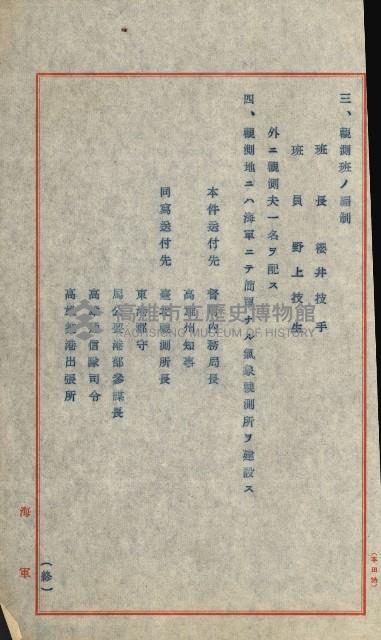 三、觀測班ノ編制
班長 櫻井技手
班員 野上技生
外ニ觀測夫一名ヲ配ス
四、觀測地ニハ海軍ニテ簡單ナル氣象觀測所ヲ建設ス
本件送付先 督府內務局長
高雄州知事
同寫送付先 臺灣觀測所長
東港郡守
馬公要港部參謀長
高雄通信隊司令
高雄築港出張所
(終)
海軍
高雄市立歷史博物館
KAOHSIUNG MUSEUM OF HISTORY